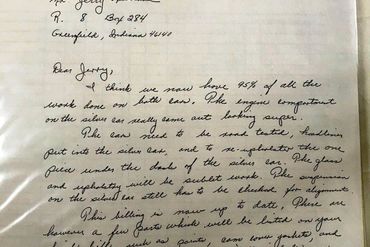 Mr. Jerry
R. 8 Box 284
Greenfield, Indiana 46140
Dear Jerry,
I think we now have 95% of all the
work done on both cars. The engine compartment
on the silver car really came out looking super.
The cars need to be road tested, headliner
put into the silver car, and to re-upholster the one
piece under the dash of the silver car. The glass
and upholstery will be sublet work. The suspension
on the silver car still has to be checked for alignment.
This billing is now up to date, There are
however a few parts which will be listed on your
such as paint, cam cover gaskets and